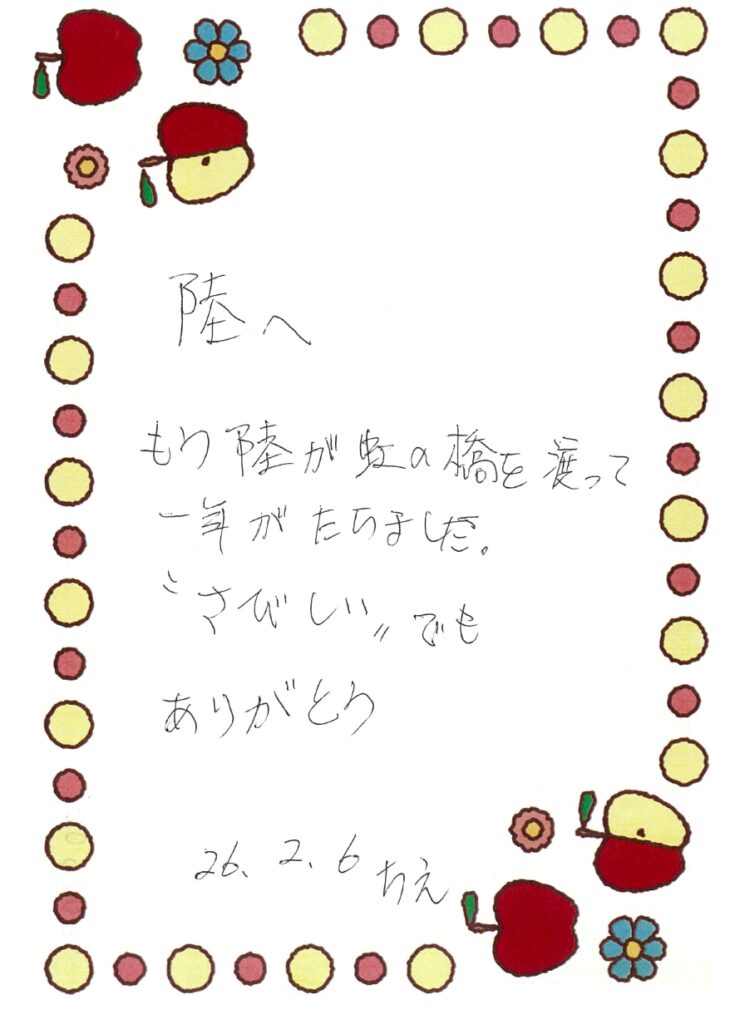 陸へ
もう陸が虹の橋を渡って
一年がたちました。
〝さびしい〟でも
ありがとう
26.2.6 ちえ